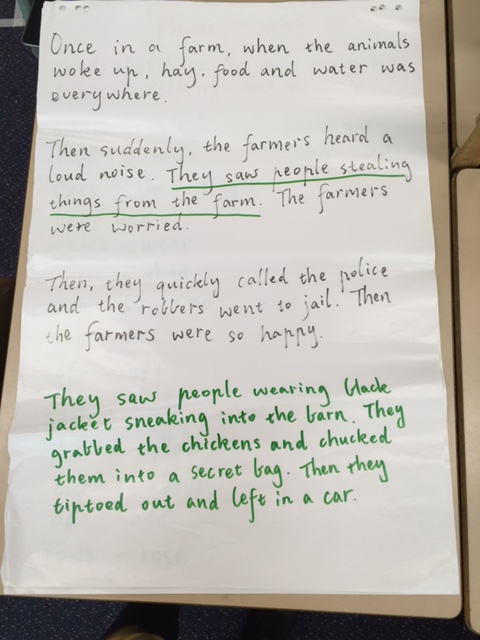 Once in a farm, when the animals
woke up, hay. food and water was
everywhere.
Then suddenly, the farmers heard a
loud noise. They saw people stealing
things from the farm. The farmers
were worried.
Then, they quickly called the police
and the robbers went to jail. Then
the farmers were so happy.
They saw people wearing black
jacket sneaking into the barn. They
grabbed the chickens and chucked
them into a secret bag. Then they
tiptoed out and left in a car.